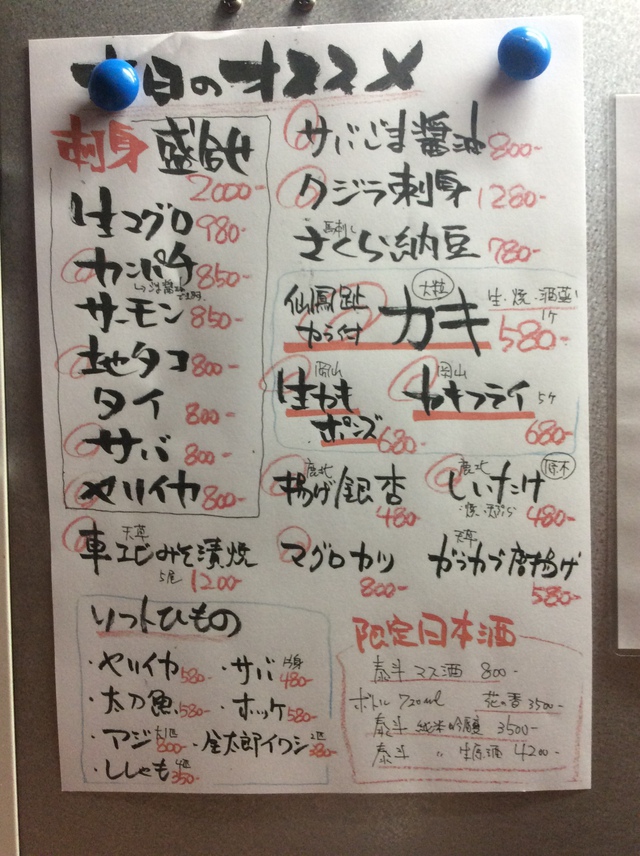 本日のオススメ
刺身盛合せ
2000-
生コグロ 980-
カンパチ 850-
サーモン 850-
地タコ 800-
タイ 800-
サバ 800-
ヤリイカ 800-
サバごま醤油 800-
クジラ刺身 1280-
馬刺し
さくら納豆 780-
仙鳳趾
カラ付
カキ
大粒
生・焼・酒蒸
1ケ
580-
岡山
生カキ
ポンズ 680-
岡山
カキフライ 5ケ
680-
鹿北
揚げ銀杏
480-
鹿北
しいたけ
原木
480-
天草
車エビみそ漬焼
5尾 1200-
マグロカツ
800-
天草
ガラカブ唐揚げ
580-
ソフトひもの
・ヤリイカ 580- ・サバ 片身 480-
・太刀魚 580- ・ホッケ 580-
・アジ 800- ・金太郎イワシ 2匹 380-
・ししゃも 4匹 350-
限定日本酒
泰斗 マス酒 800-
ボトル 720ml 花の香 3500-
泰斗 純米吟醸 3500-
泰斗 〃 生原酒 4200-